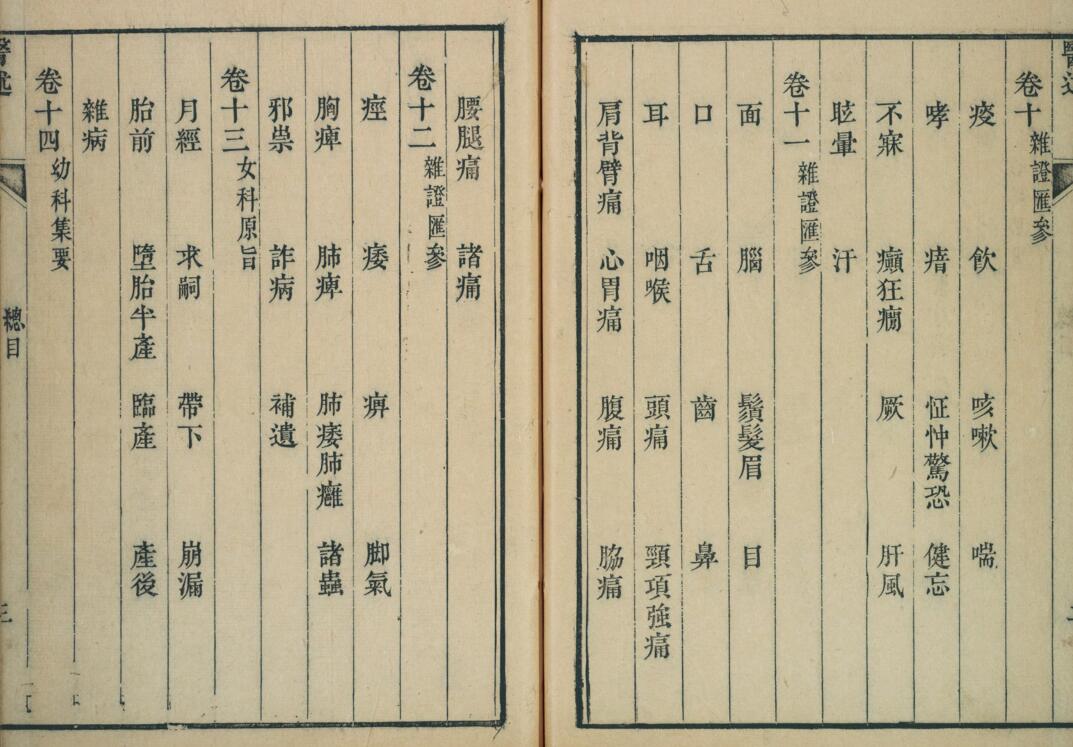 醫述
卷十 雜證匯參
痰 飲 咳嗽 喘
哮 瘖 怔忡驚恐 健忘
不寐 癲狂癇 厥 肝風
眩暈 汗
卷十一 雜證匯參
面 腦 鬚髮眉 目
口 舌 齒 鼻
耳 咽喉 頭痛 頸項強痛
肩背臂痛 心胃痛 腹痛 脇痛
腰腿痛 諸痛
卷十二 雜證匯參
痙 痿 痹 脚氣
胸痺 肺痺 肺痿肺癰 諸蟲
邪祟 詐病 補遺
卷十三 女科原旨
月經 求嗣 帶下 崩漏
胎前 墮胎半產 臨產 產後
雜病
卷十四 幼科集要
醫述 總目 三